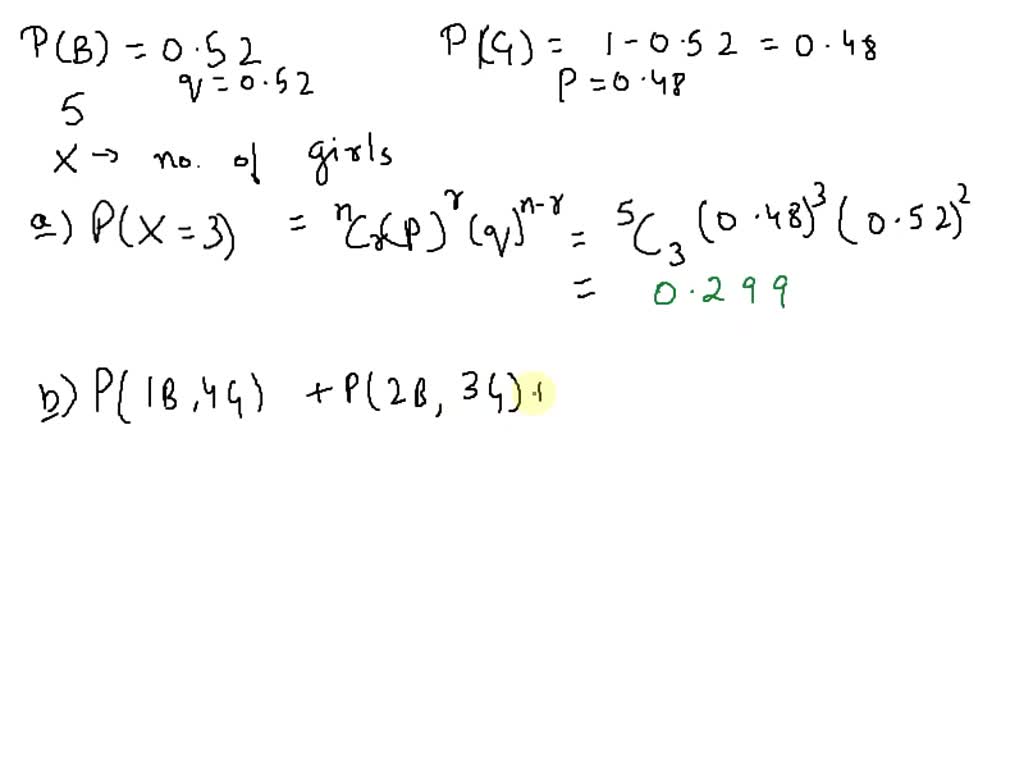 P(B) = 0.52 P(G) = 1-0.52 = 0.48
q = 0.52 P = 0.48
5
X → no. of girls
a) P(X=3) = ⁿCᵣ(P)ʳ(q)ⁿ⁻ʳ = ⁵C₃(0.48)³(0.52)²
= 0.299
b) P(1B,4G) + P(2B, 3G)